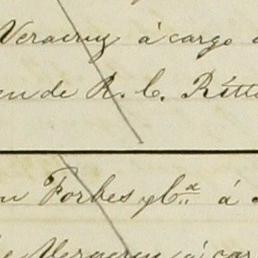 Veracruz á cargo
en de R. C. Ritte
Forbes y Ca á
Veracruz á car